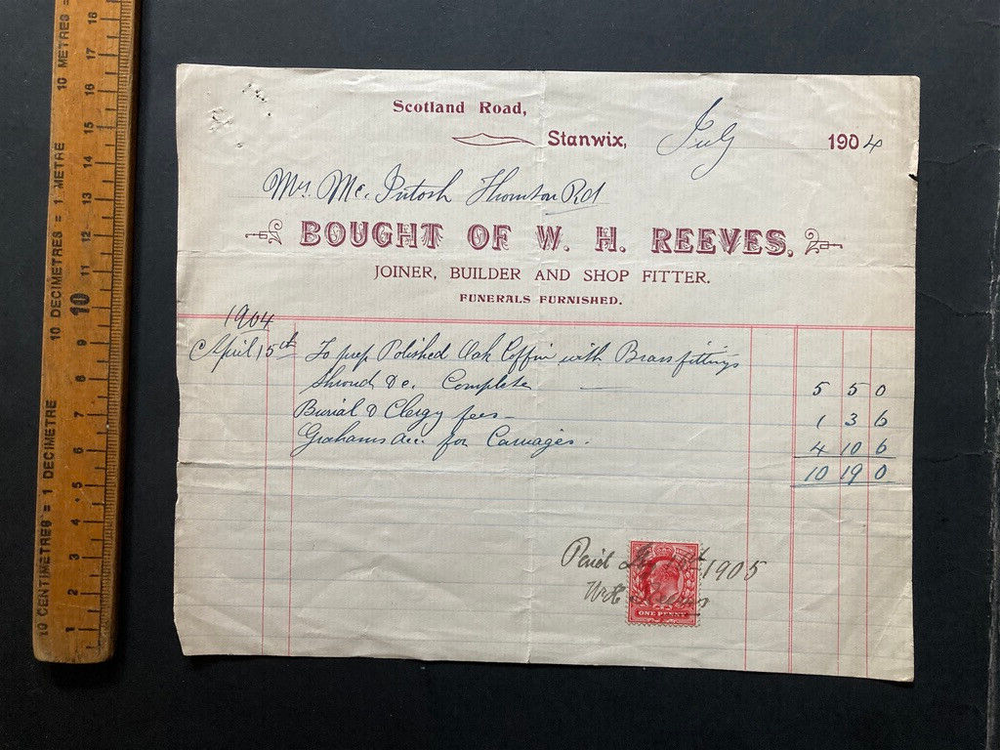 Scotland Road,
Stanwix, July 1904
Mrs. Mc. Intosh Thornton Rd
BOUGHT OF W. H. REEVES,
JOINER, BUILDER AND SHOP FITTER.
FUNERALS FURNISHED.
1904
April 15th To prep Polished Oak Coffin with Brass fittings
Shroud &c. Complete 5 5 0
Burial & Clergy fees 1 3 6
Grahams acc. for Carriages. 4 10 6
10 19 0
Paid 1905
WH Reeves
ONE PENNY
10 CENTIMETRES = 1 DECIMETRE 10 DECIMETRES = 1 METRE 10 METRES =
1 2 3 4 5 6 7 8 9 10 11 12 13 14 15 16 17 18